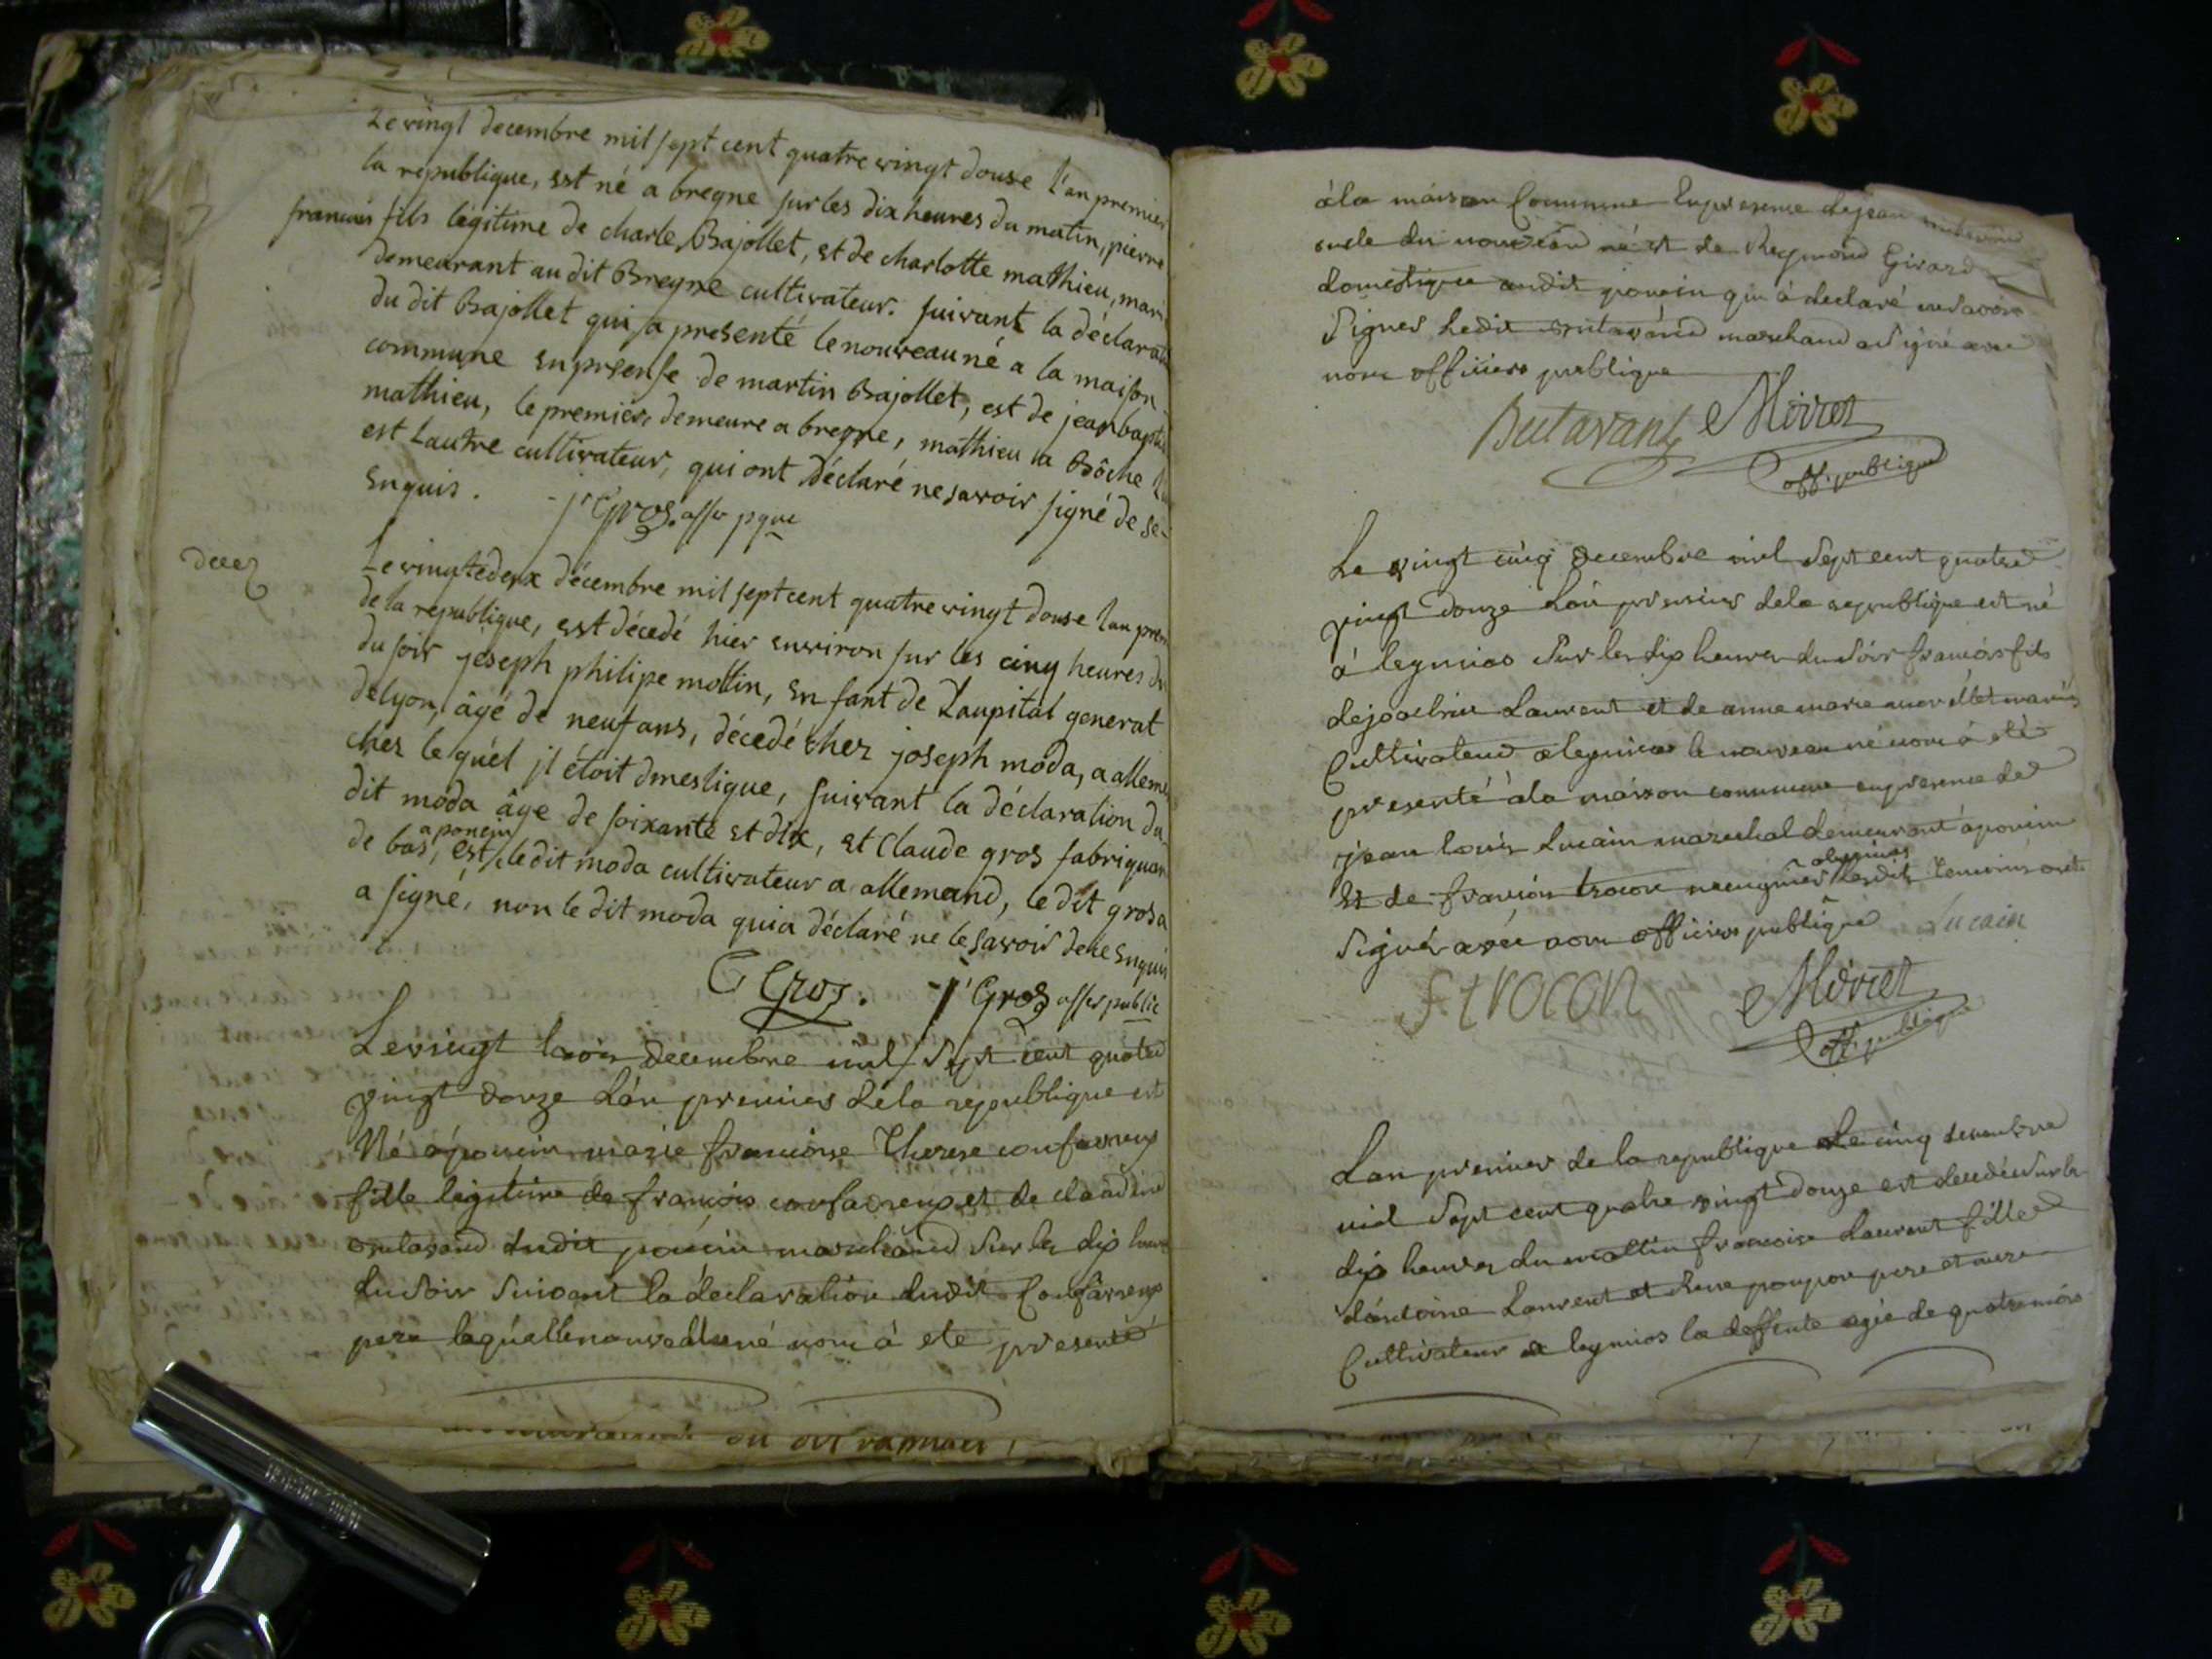 Le vingt decembre mil sept cent quatre vingt douse l'an premier
la republique, est né a bregne sur les dix heures du matin, pierre
francois fils légitime de charle Bajollet, et de charlotte mathieu, mari
demeurant au dit Bregne cultivateur. suivant la déclaration
du dit Bajollet qui a presenté le nouveau né a la maison
commune en presense de martin Bajollet, est de jean baptis
mathieu, le premier demeure a bregne, mathieu a Bôche
est Lautre cultivateur, qui ont déclaré ne savoir signé de se
enquis. j Gros. offer pque
decez
Le vingtedeux décembre mil sept cent quatre vingt douse lan prem
de la republique, est décedé hier environ sur les cinq heures du
du soir joseph philipe mottin, enfant de Laupital generat
de lyon, âgé de neuf ans, décedé cher joseph moda, a alleme
cher le quel jl étoit dmestique, suivant la déclaration du
dit moda âge de soixante et dix, et Claude gros fabriquan
a poncin
de bas, est le dit moda cultivateur a allemand, le dit gros a
a signé, non le dit moda qui a déclaré ne le savoir de ce enquis
C Gros. j Gros offer public
Le vingt trois decembre mil sept cent quatre
vingt douze Lan premier de la republique est
Né a poncin marie francoise Therese confavreux
fille legitime de françois confavreux et de claudine
butavand dudit poncin marchand sur les dix heures
du soir suivant la déclaration dudit Confavreux
pere laquelle nouvellene nous à ete presenté
à la maison Commune En presence de jean
oncle du nouveau né et de Reymond Girard
domestique audit poncin qui à declaré ne savoir
signer ledit butavand marchand a signé avec
nous officier publique
Butavant Moiret
off. publique
Le vingt cinq decembre mil sept cent quatre
vingt douze Lan premier de la republique est né
à leymiat sur les dix heures du soir francois fils
de joachin Laurent et de anne marie mariés
Cultivateur a leymiat le nouveau né nous à eté
presenté à la maison commune en presence de
jean louis Lucain marechal demeurant à poncin
et de francois trocon a leymiat lesdits temoins ont
signés avec nous officier publique Lucain
f trocon Moiret
off. publique
Lan premier de la republique Le cinq decembre
mil sept cent quatre vingt douze est decedée sur les
dix heures du mattin francoise Laurent fille
d'antoine Laurent et poupon pere et mere
Cultivateur a leymiat la deffunte agée de quatre mois